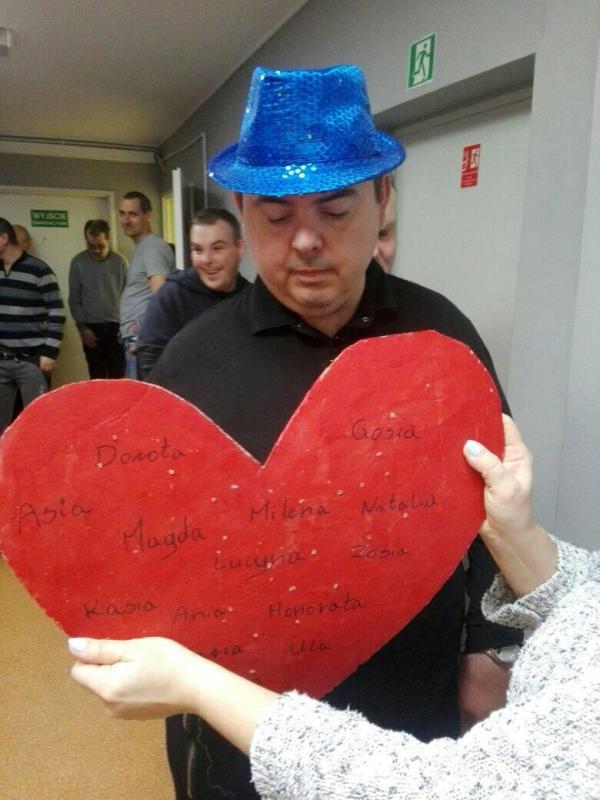 WYJŚCIE
Gosia
Dorota
Asia
Milena Natalia
Magda
Lucyna Zosia
Kasia Ania Honorata
Ula